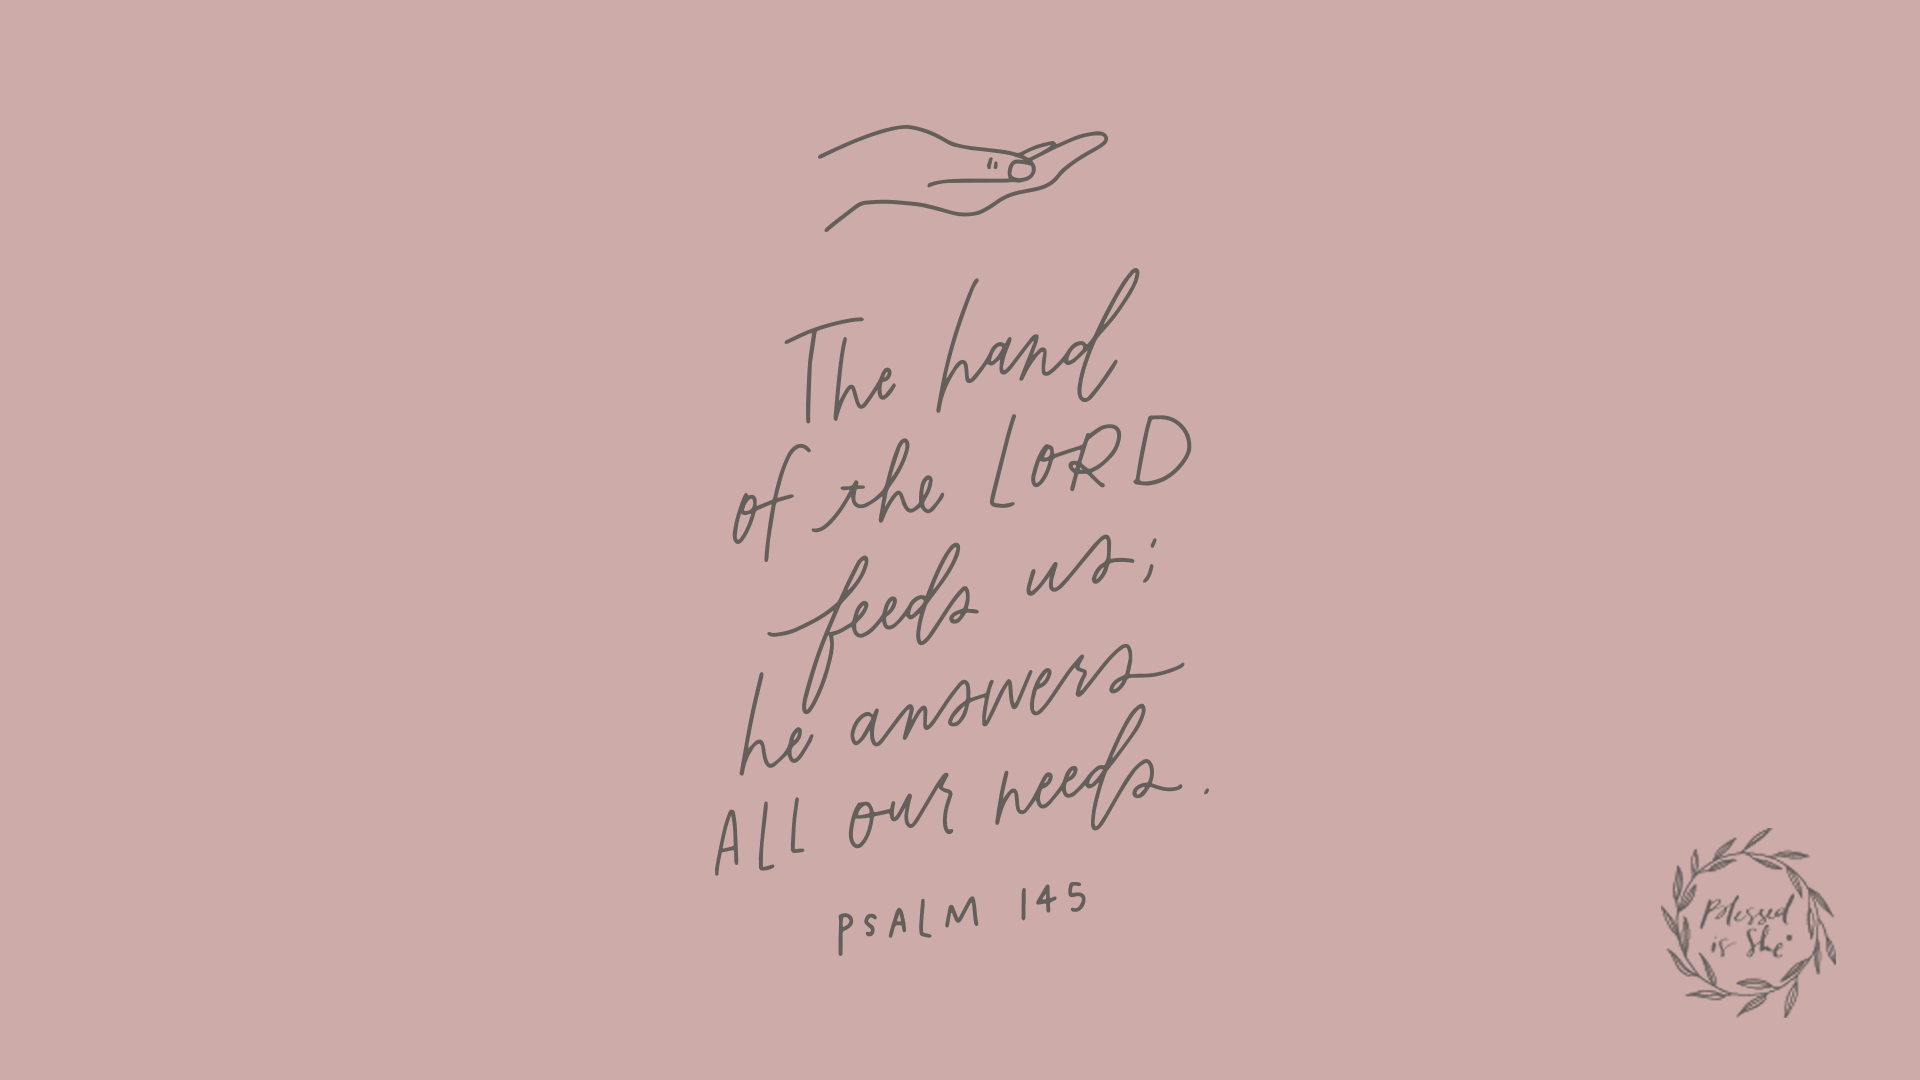 The hand
of the LORD
feeds us;
he answers
ALL our needs.
PSALM 145
Blessed
is She